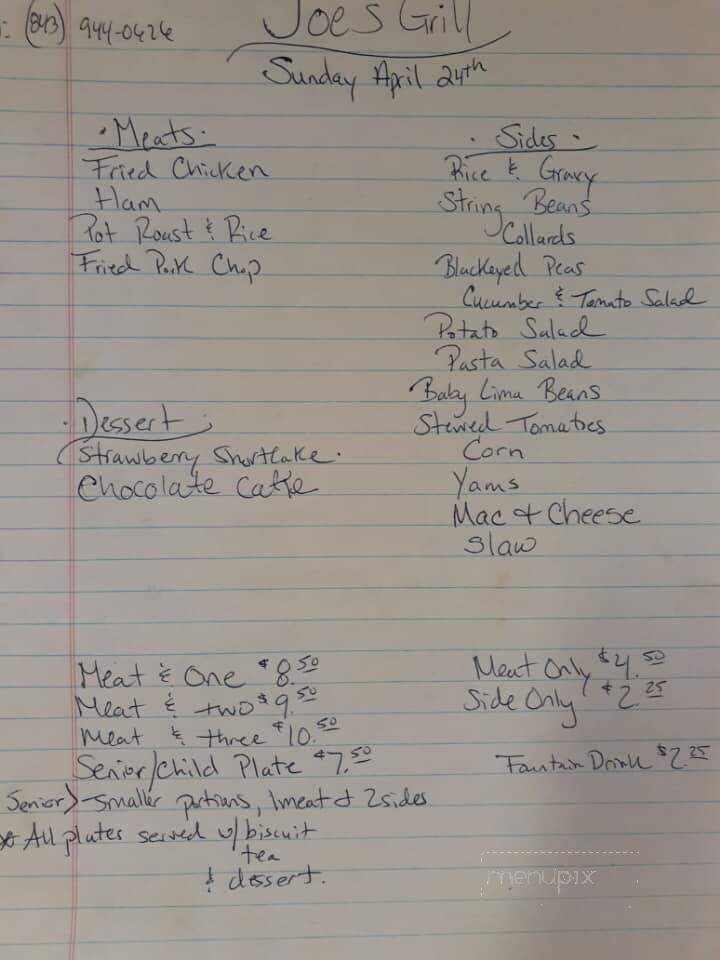 : (843) 944-0426
Joe's Grill
Sunday April 24th
· Meats ·
Fried Chicken
Ham
Pot Roast & Rice
Fried Pork Chop
· Sides ·
Rice & Gravy
String Beans
Collards
Blackeyed Peas
Cucumber & Tomato Salad
Potato Salad
Pasta Salad
Baby Lima Beans
Stewed Tomatoes
Corn
Yams
Mac & Cheese
Slaw
· Dessert ·
Strawberry Shortcake.
Chocolate Cake
Meat & One $8.50
Meat & two $9.50
Meat & three $10.50
Senior/Child Plate $7.50
Meat Only $4.50
Side Only $2.25
Fountain Drink $2.25
Senior > smaller portions, 1 meat & 2 sides
* All plates served w/ biscuit
tea
& dessert.
menupix